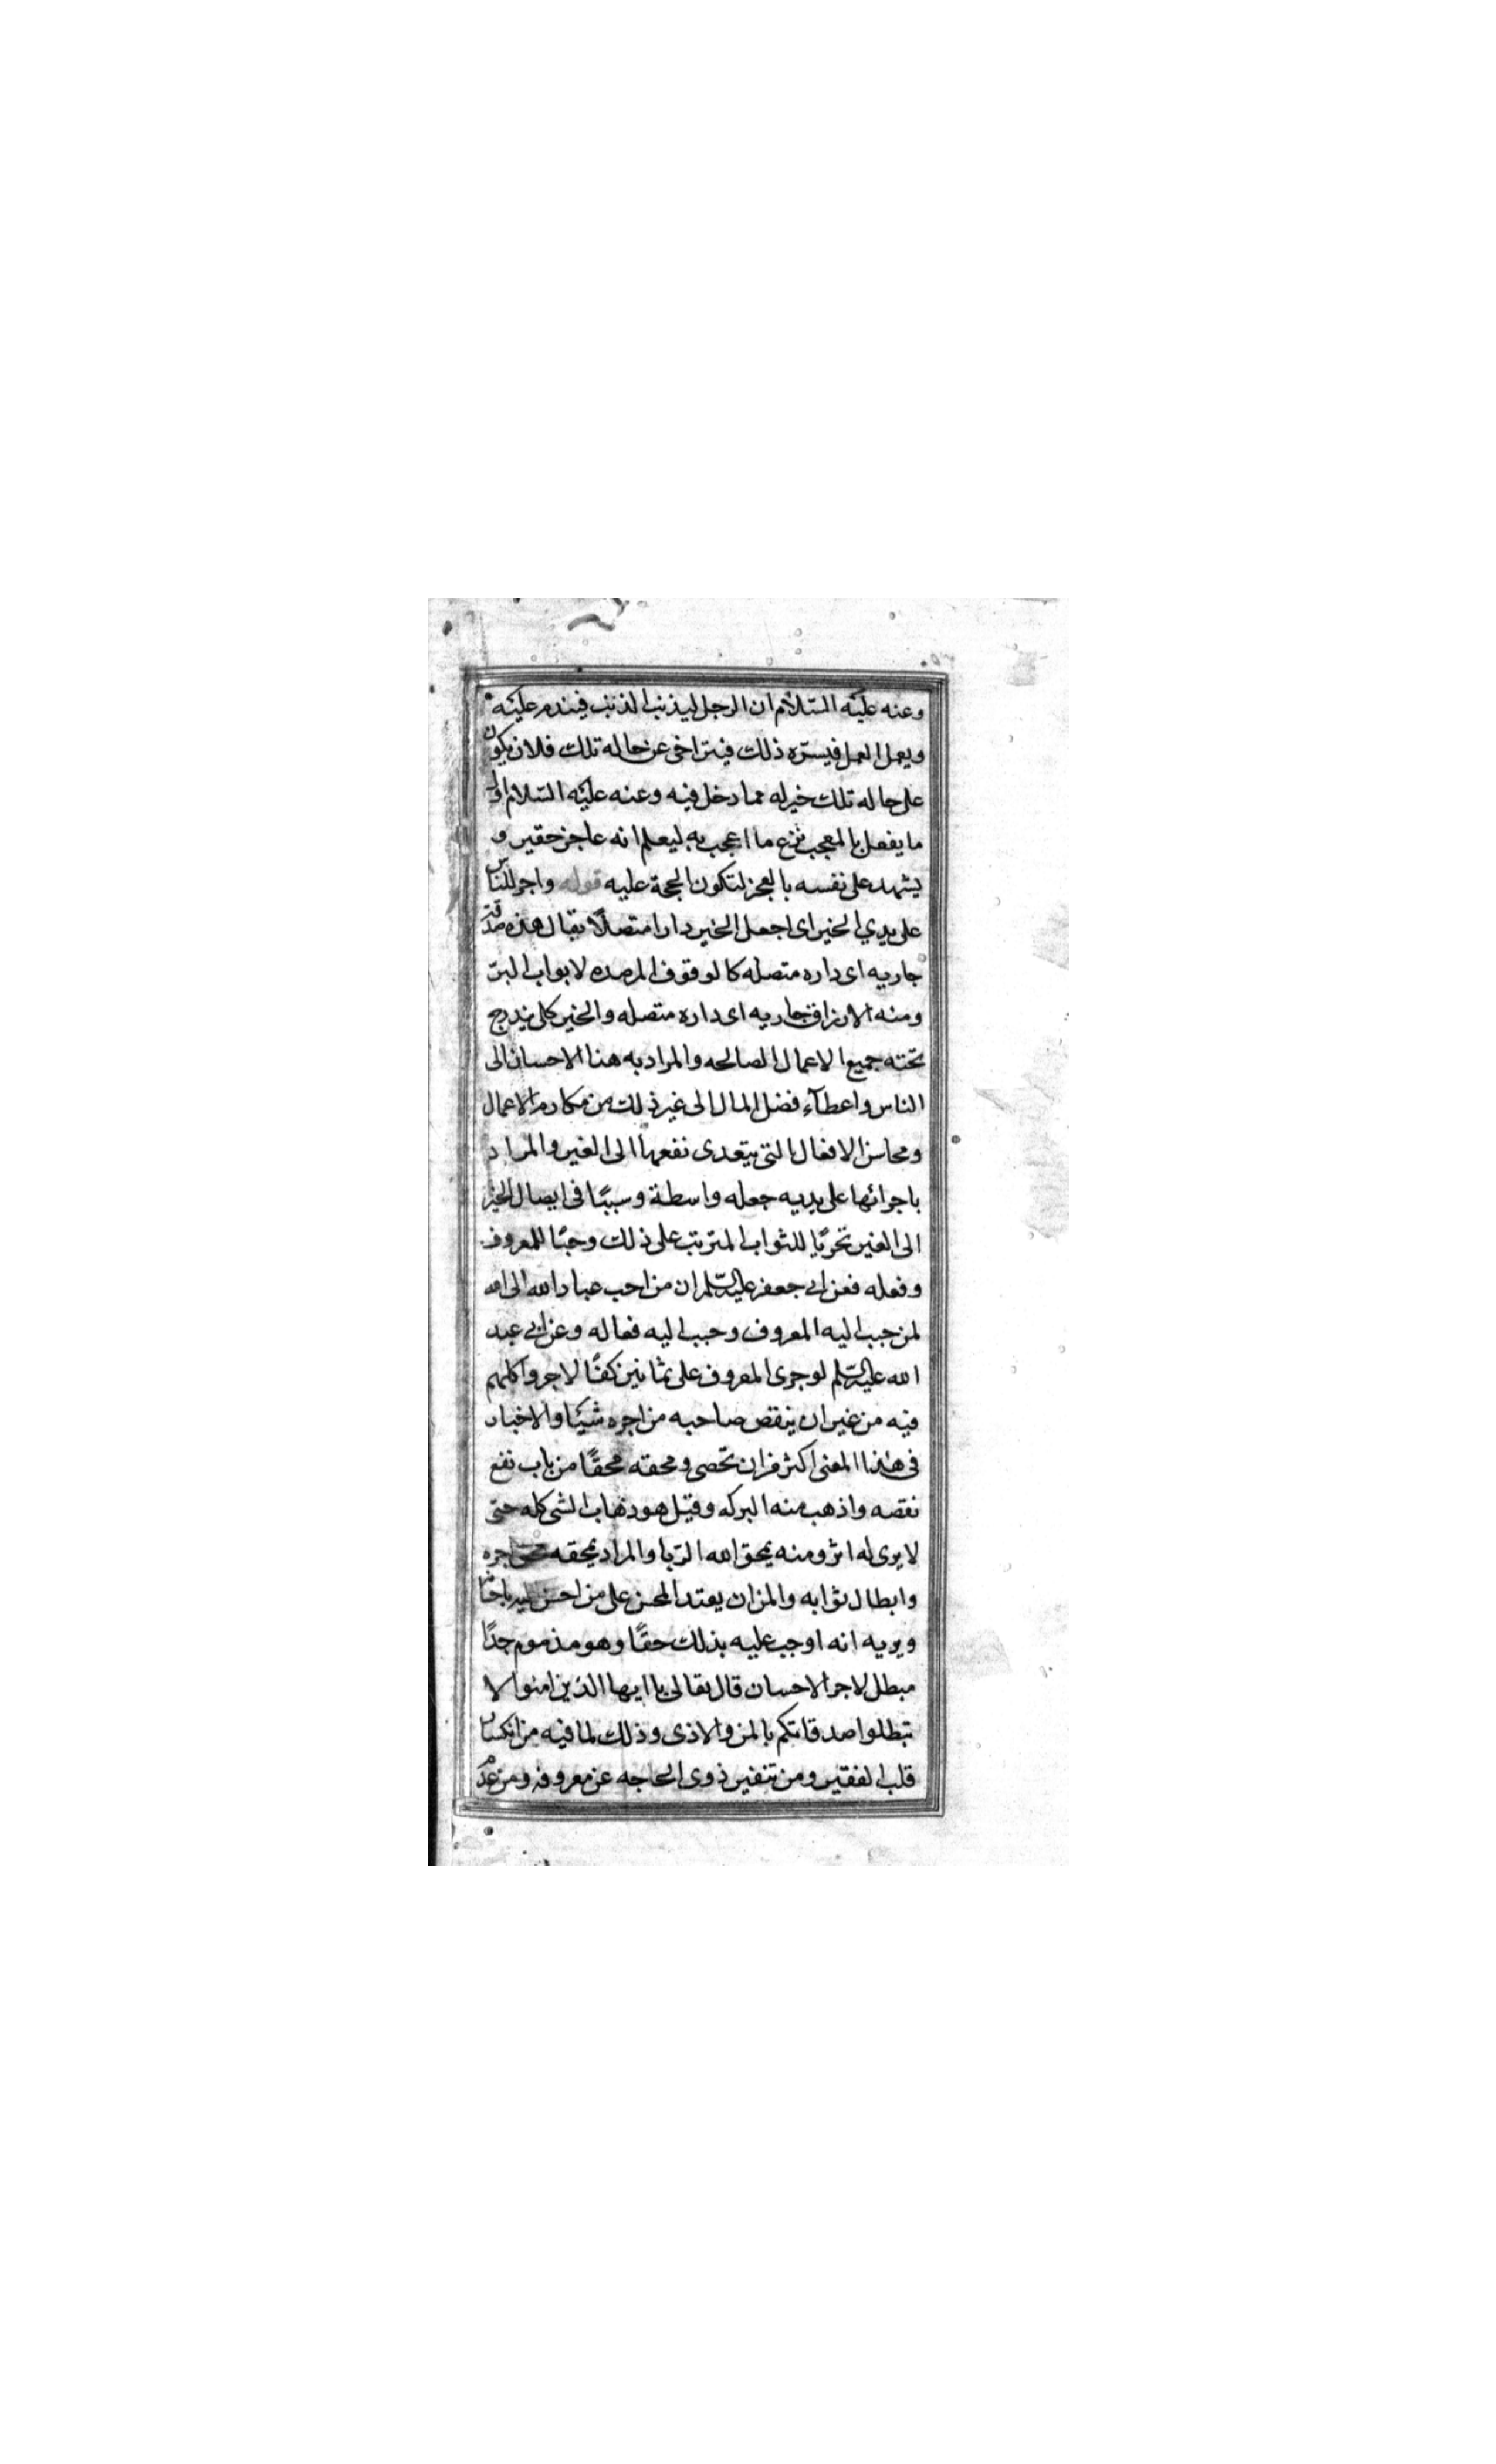 وعنه عليه السلام ان الرجل ليذنب الذنب فيندم عليه
ويعمل العمل فيسرّه ذلك فيتراخى عن حاله تلك فلان يكون
على حاله تلك خير له مما دخل فيه وعنه عليه السلام اول
ما يفعل بالمعجب نزع ما اعجب به ليعلم انه عاجز حقير و
يشهد على نفسه بالعجز لتكون الحجة عليه قوله واجر للناس
على يدي الخير اى اجعل الخير دارا متصلًا يقال هذه صدقة
جاريه اى داره متصله كالوقوف المرصده لابواب البرّ
ومنه الارزاق جاريه اى داره متصله والخير كلى يندرج
تحته جميع الاعمال الصالحه والمراد به هنا الاحسان الى
الناس واعطآء فضل المال الى غير ذلك من مكارم الاعمال
ومحاسن الافعال التى يتعدى نفعها الى الغير والمراد
باجرائها على يديه جعله واسطة وسببًا فى ايصال الخير
الى الغير تحريًا للثواب المترتب على ذلك وحبًا للمعروف
وفعله فعن ابى جعفر عليه السّلم ان من احب عباد الله الى الله
لمن حبب اليه المعروف وحبب اليه فعاله وعن ابى عبد
الله عليه السّلم لو جرى المعروف على ثمانين كفًا لاجروا كلهم
فيه من غير ان ينقص صاحبه من اجره شيئا والاخبار
فى هذا المعنى اكثر من ان تحصى ومحقه محقًا من باب نفع
نقصه واذهب منه البركه وقيل هو ذهاب الشى كله حتى
لا يرى له اثر ومنه يمحق الله الرّبا والمراد بمحقه محق اجره
وابطال ثوابه والمن ان يعتد المحسن على من احسن اليه باحسانه
ويريه انه اوجب عليه بذلك حقًا وهو مذموم جدًا
مبطل لاجر الاحسان قال تعالى يا ايها الذين امنوا لا
تبطلوا صدقاتكم بالمن والاذى وذلك لما فيه من انكسار
قلب الفقير ومن تنفير ذوى الحاجه عن معروفه ومن عدم